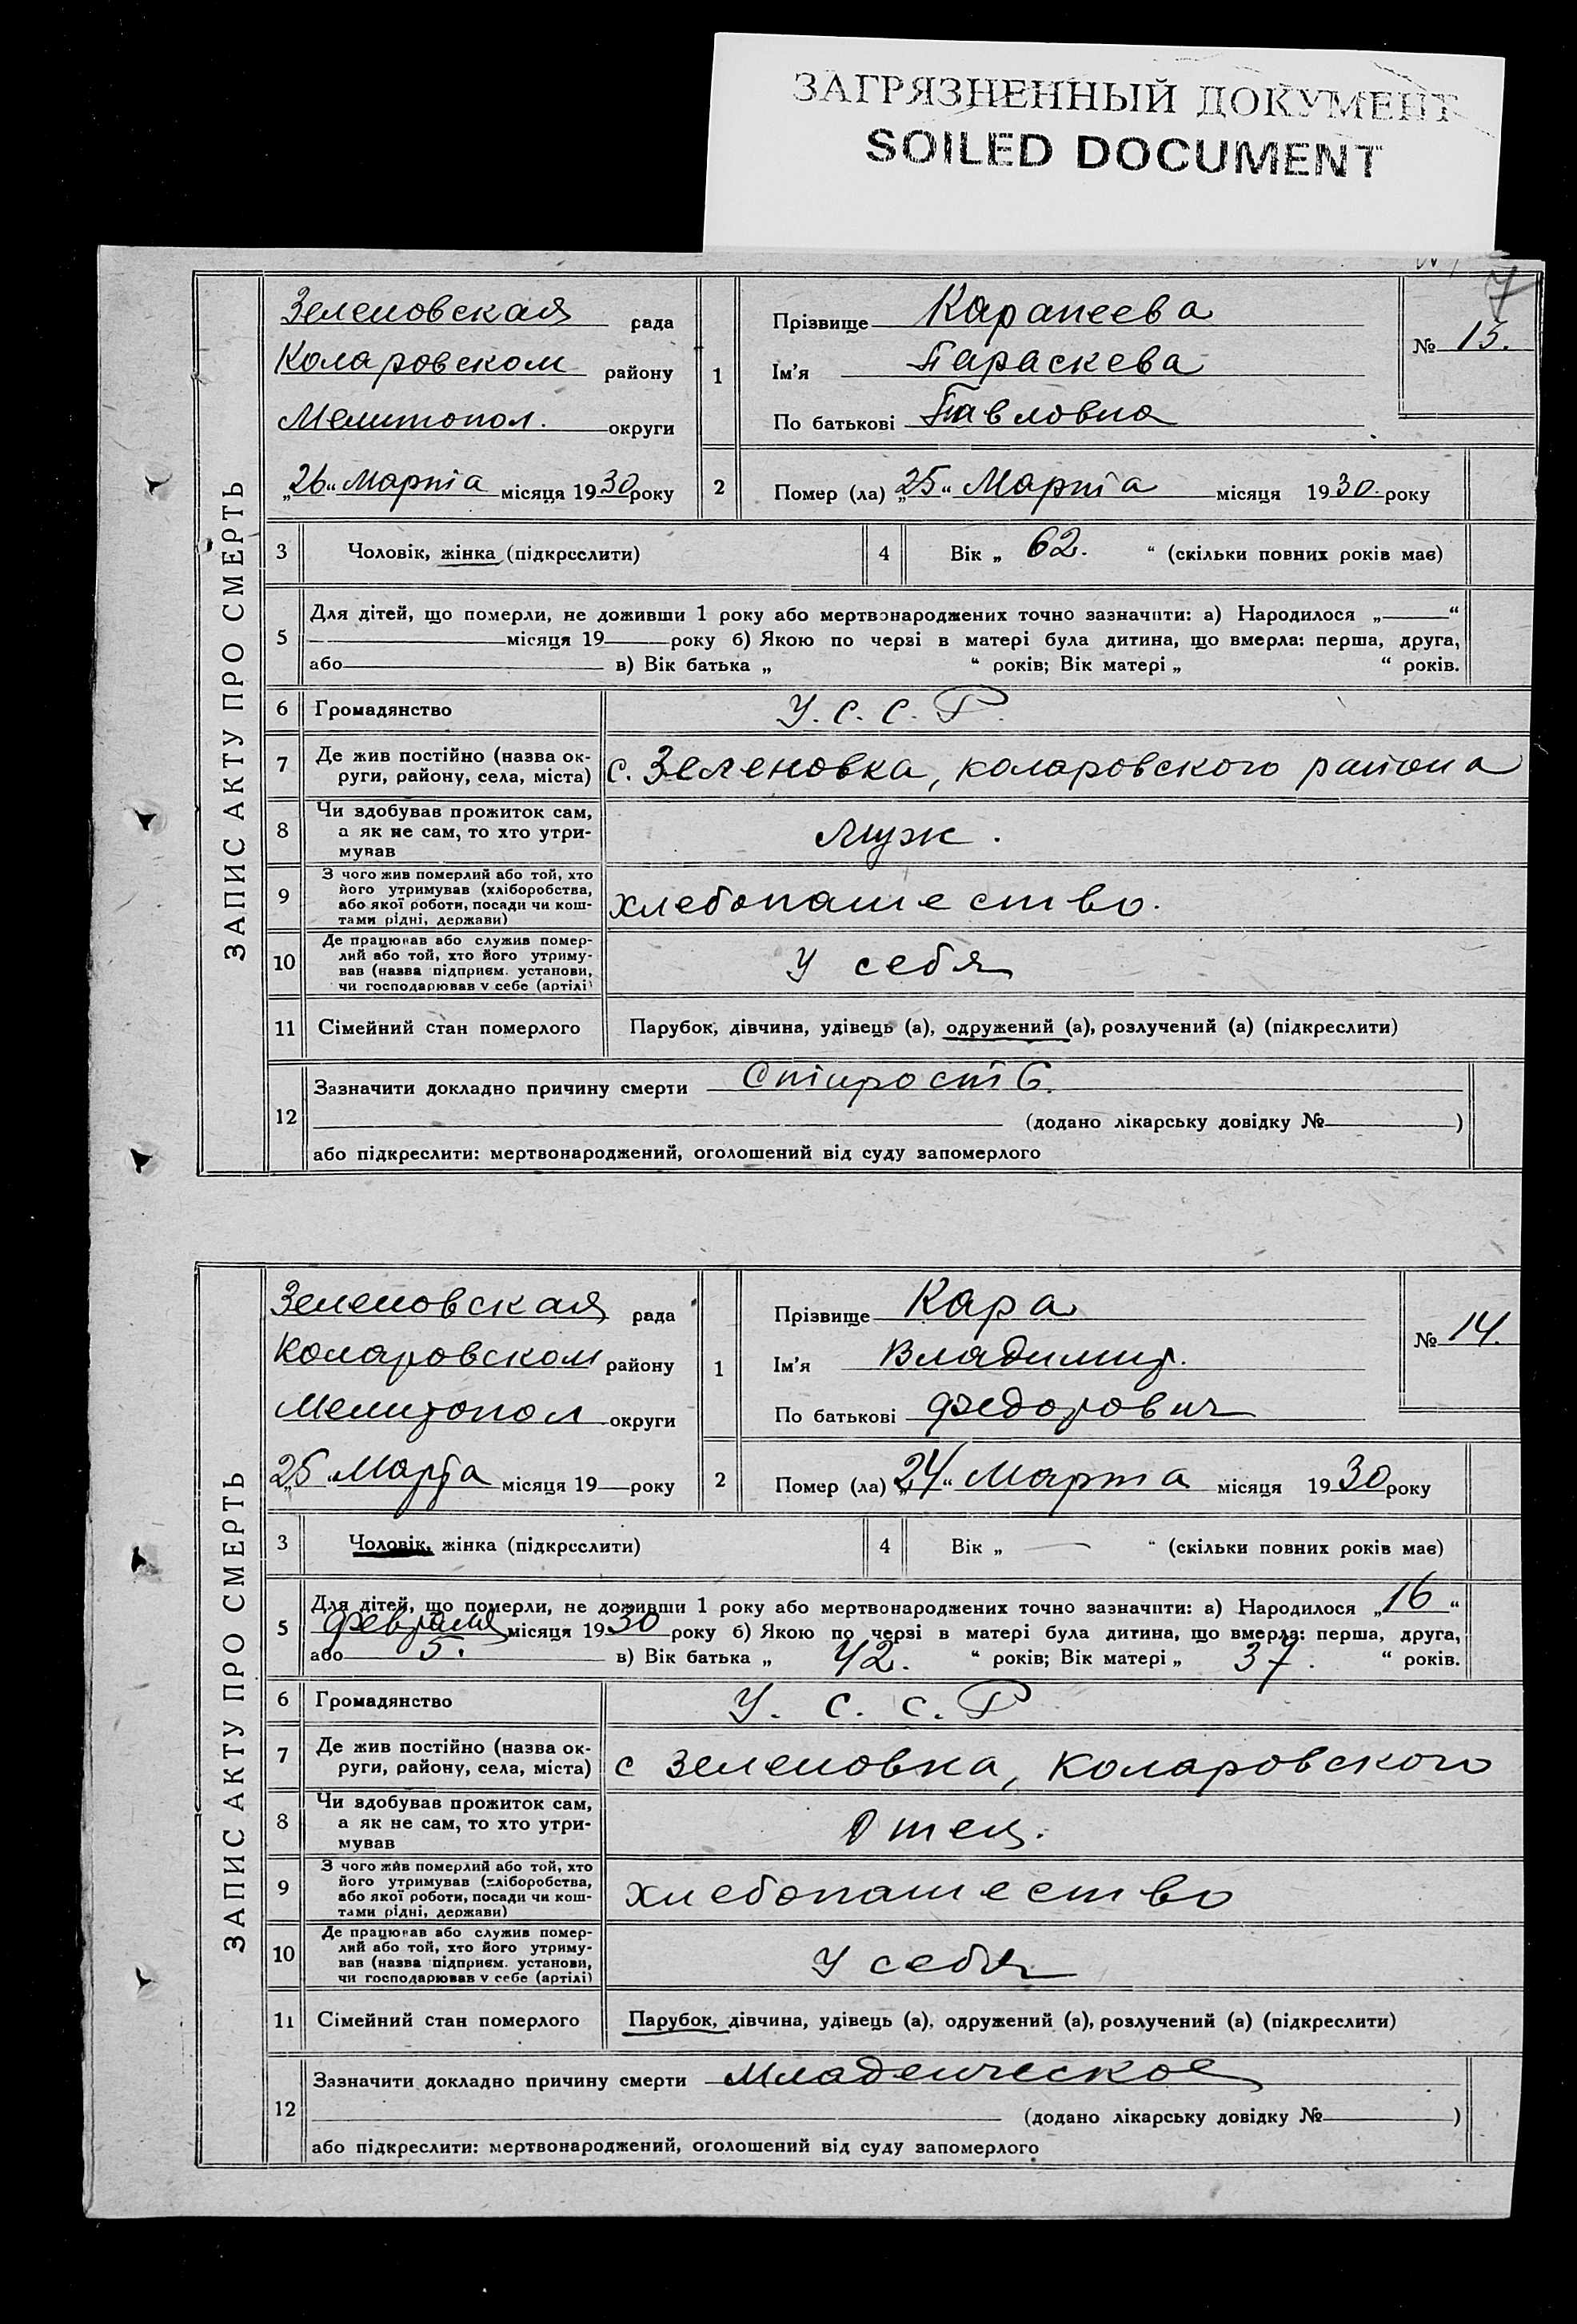 ЗАГРЯЗНЕННЫЙ ДОКУМЕНТ
SOILED DOCUMENT
7
ЗАПИС АКТУ ПРО СМЕРТЬ
Зеленовская рада
Коларовском району
Мелитопол. округи
„26“ Марта місяця 1930 року
1
Прізвище Карапеева
Ім’я Параскева
По батькові Павловна
№ 13.
2
Помер (ла) „25“ Марта місяця 1930. року
3 Чоловік, жінка (підкреслити)
4 Вік „ 62. “ (скільки повних років має)
5
Для дітей, що померли, не доживши 1 року або мертвонароджених точно зазначити: а) Народилося „ “
місяця 19 року б) Якою по черзі в матері була дитина, що вмерла: перша, друга,
або в) Вік батька „ “ років; Вік матері „ “ років.
6 Громадянство У. С. С. Р.
7 Де жив постійно (назва ок-
руги, району, села, міста)
с. Зеленовка, коларовского района
8 Чи здобував прожиток сам,
а як не сам, то хто утри-
мував
Муж.
9 З чого жив померлий або той, хто
його утримував (хліборобства,
або якої роботи, посади чи кош-
тами рідні, держави)
хлебопашество.
10 Де працював або служив помер-
лий або той, хто його утриму-
вав (назва підприєм. установи,
чи господарював у себе (артілі)
У себя
11 Сімейний стан померлого Парубок, дівчина, удівець (а), одружений (а), розлучений (а) (підкреслити)
12 Зазначити докладно причину смерти
(додано лікарську довідку № )
або підкреслити: мертвонароджений, оголошений від суду запомерлого
ЗАПИС АКТУ ПРО СМЕРТЬ
Зеленовская рада
Коларовском району
Мелитопол округи
„25 Марта місяця 19 року
1
Прізвище Кара
Ім’я Владимир.
По батькові Федорович
№ 14.
2
Помер (ла) „24“ Марта місяця 1930 року
3 Чоловік, жінка (підкреслити)
4 Вік „ — “ (скільки повних років має)
5
Для дітей, що померли, не доживши 1 року або мертвонароджених точно зазначити: а) Народилося „16“
Февраля місяця 1930 року б) Якою по черзі в матері була дитина, що вмерла: перша, друга,
або 5. в) Вік батька „ 42. “ років; Вік матері „ 37. “ років.
6 Громадянство У. С. С. Р
7 Де жив постійно (назва ок-
руги, району, села, міста)
с Зеленовка, Коларовского
8 Чи здобував прожиток сам,
а як не сам, то хто утри-
мував
Отец.
9 З чого жив померлий або той, хто
його утримував (хліборобства,
або якої роботи, посади чи кош-
тами рідні, держави)
хлебопашество
10 Де працював або служив помер-
лий або той, хто його утриму-
вав (назва підприєм. установи,
чи господарював у себе (артілі)
У себя
11 Сімейний стан померлого Парубок, дівчина, удівець (а), одружений (а), розлучений (а) (підкреслити)
12 Зазначити докладно причину смерти Младенческое
(додано лікарську довідку № )
або підкреслити: мертвонароджений, оголошений від суду запомерлого